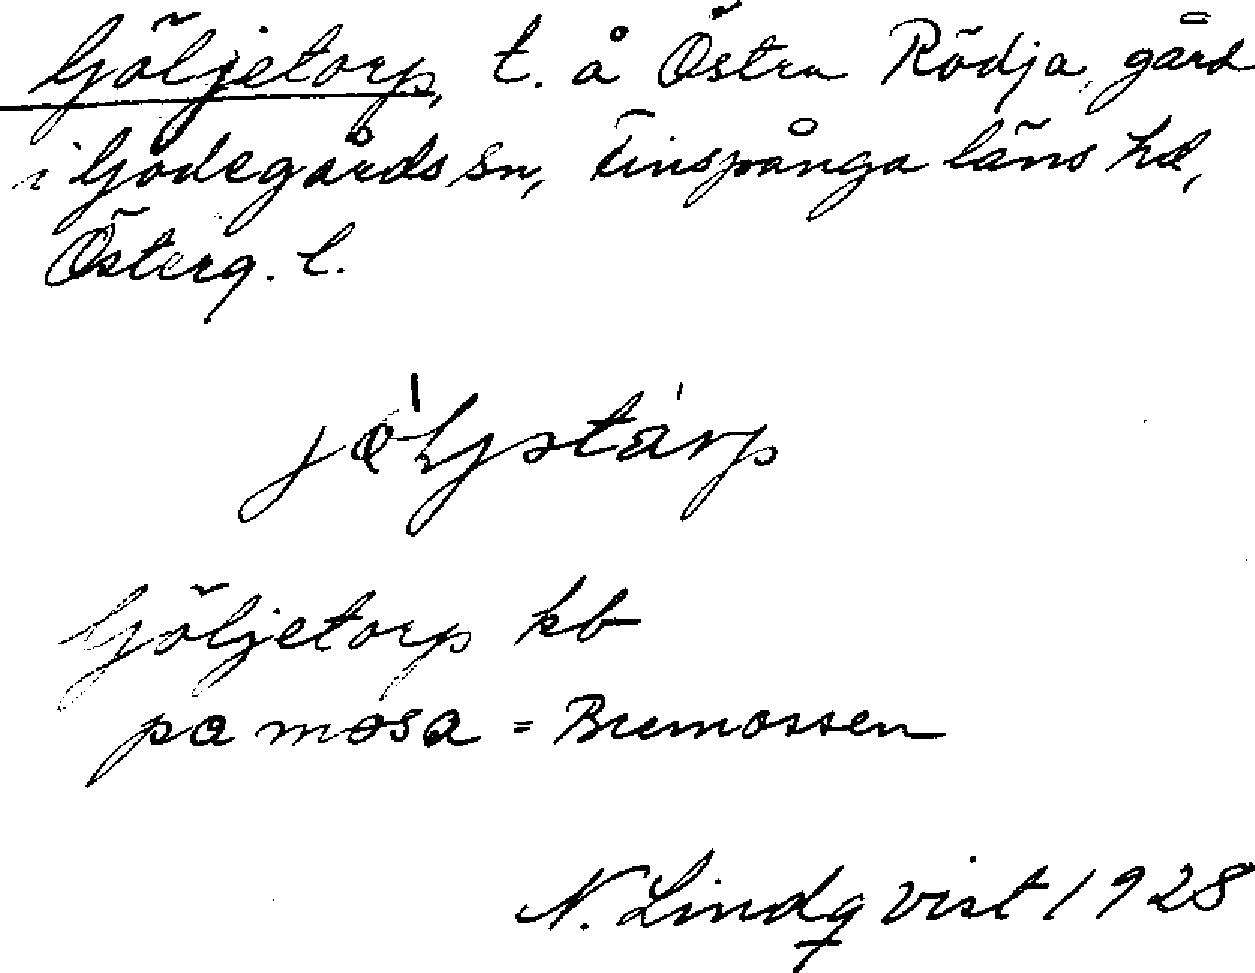 Göljetorp, t. å Östra Rödja, gård
i Godegårds sn, Finspånga läns hd,
Österg. l.
Göljetorp kb
pa mosa = Bremossen
N. Lindqvist 1928